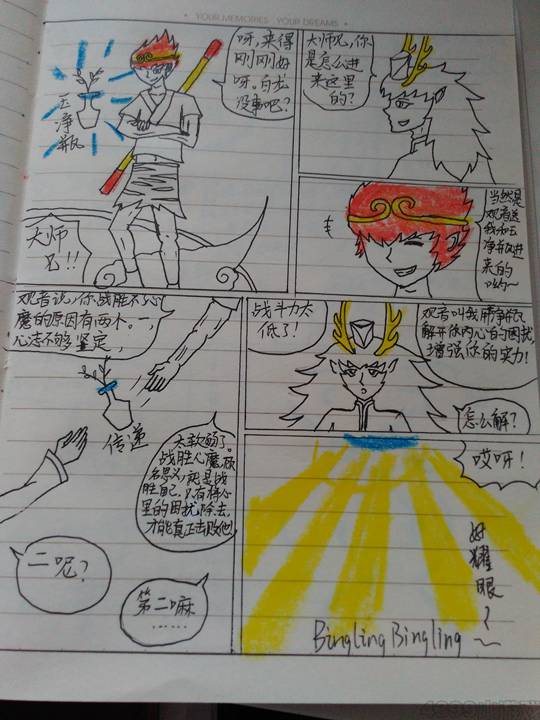 YOUR MEMORIES YOUR DREAMS
呀,来得
刚刚好
呀,白龙
没事吧?
玉
净
瓶
大师
兄!!
大师兄,你
是怎么进
来这里
的?
当然是
观音送
我和玉
净瓶进
来的
观音说,你战胜不了心
魔的原因有两个。一,
心法不够坚定,
传递
太软弱了。
战胜心魔,顾
名思义,就是战
胜自己,只有将心
里的困扰除去,
才能真正击败他
二呢?
第二嘛
……
战斗力太
低了!
观音叫我用净瓶
解开你内心的困扰,
增强你的实力!
怎么解?
哎呀!
好
耀
眼
~
BinglingBingling